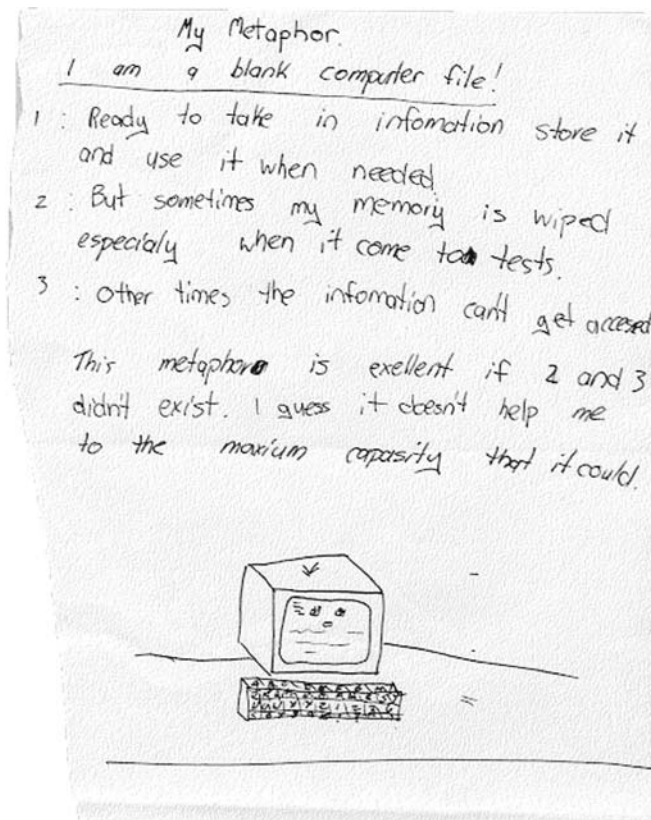 My Metaphor.
I am a blank computer file!
1 : Ready to take in infomation store it
and use it when needed.
2 : But sometimes my memory is wiped
especialy when it come to tests.
3 : Other times the infomation can't get accesed
This metaphor is exellent if 2 and 3
didn't exist. I guess it doesn't help me
to the maxium capasity that it could.